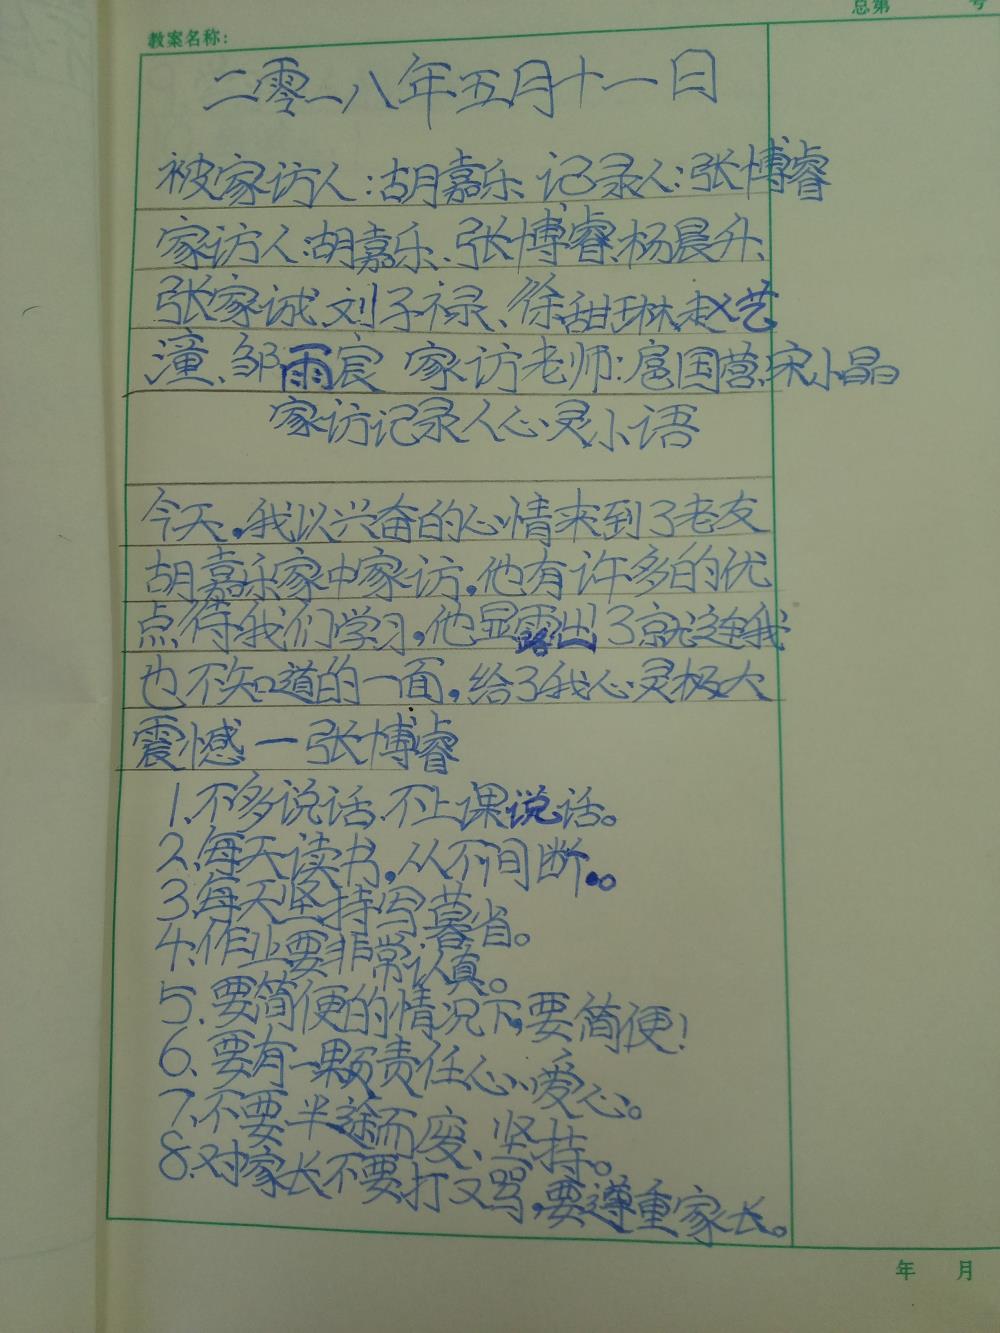 总第 号
教案名称:
二零一八年五月十一日
被家访人:胡嘉乐 记录人:张博睿
家访人:胡嘉乐、张博睿、杨晨升、
张家诚、刘子禄、徐甜琳、赵艺
潼、邹雨宸 家访老师:扈国营、宋小晶
家访记录人心灵小语
今天,我以兴奋的心情来到了老友
胡嘉乐家中家访,他有许多的优
点待我们学习,他显露出了就连我
也不知道的一面,给了我心灵极大
震憾一张博睿
1、不多说话、不上课说话。
2、每天读书,从不间断。
3、每天坚持写暮省。
4、作业要非常认真。
5、要简便的情况下,要简便!
6、要有一颗责任心、爱心。
7、不要半途而废、坚持。
8、对家长不要打又骂,要遵重家长。
年 月